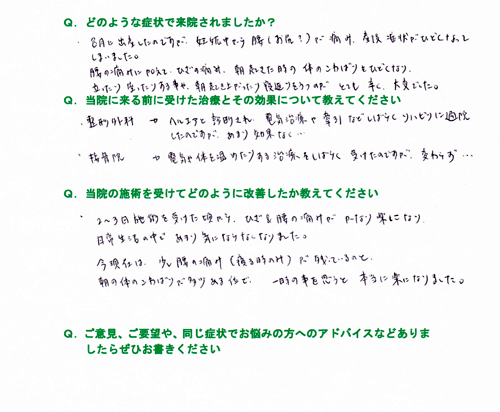 Q．どのような症状で来院されましたか？
・8月に出産したのですが、妊娠中から腰（お尻？）が痛み、産後 症状がひどくなって
しまいました。
腰の痛みに加えて、ひざの痛み、朝起きた時の体のこわばりもひどくなり、
立ったり座ったりする事や、朝起き上がったり寝返りをうつのが とても辛く、大変でした。
Q．当院に来る前に受けた治療とその効果について教えてください
・整形外科 → ヘルニアと診断され、電気治療や牽引などしばらくリハビリに通院
したのですが、あまり効果なく…
・接骨院 → 電気や体を温めたりする治療をしばらく受けたのですが、変わらず…
Q．当院の施術を受けてどのように改善したか教えてください
・2～3回施術を受けた頃から、ひざも腰の痛みがかなり楽になり、
日常生活の中であまり気にならなくなりました。
今現在は、少し腰の痛み（寝る時のみ）が残っているのと、
朝の体のこわばりが多少ある位で、一時の事を思うと本当に楽になりました。
Q．ご意見、ご要望や、同じ症状でお悩みの方へのアドバイスなどありま
したらぜひお書きください